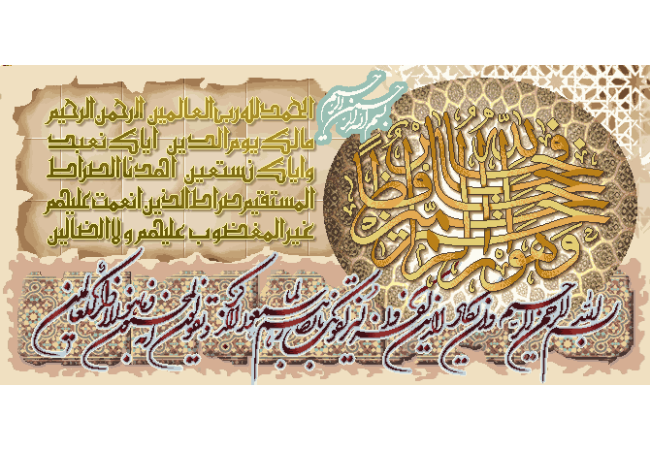 بسم الله الرحمن الرحيم
الحمد لله رب العالمين الرحمن الرحيم
مالك يوم الدين اياك نعبد
واياك نستعين اهدنا الصراط
المستقيم صراط الذين انعمت عليهم
غير المغضوب عليهم ولا الضالين
فالله خير حافظا وهو ارحم الراحمين
بسم الله الرحمن الرحيم وان يكاد الذين كفروا ليزلقونك بابصارهم لما سمعوا الذكر ويقولون انه لمجنون وما هو الا ذكر للعالمين